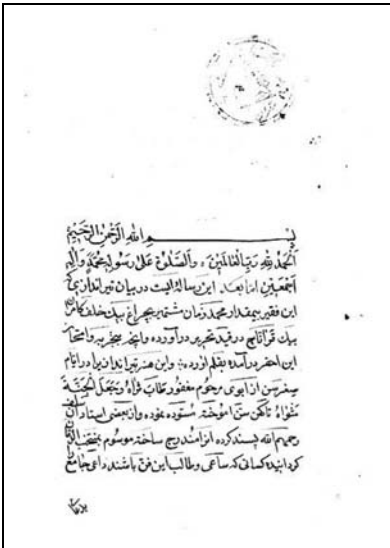 بسم الله الرحمن الرحیم
الحمد لله رب العالمین والصلوة علی رسوله محمد وآله
اجمعین اما بعد این رساله ایست در بیان تیراندازی که
این فقیر بیمقدار محمد زمان مشتهر بچراغ بیک خلف کامران
بیک در قید تحریر درآورده وانچه بتجربه وامتحان
این احقر برآمده بقلم آورده واین هنر تیراندازی را در ایام
صغر سن از ابوی مرحوم مغفور طاب ثراه وجعل الجنة
مثواه تا کهن سن آموخته ستوده نموده واز بعضی استادان سلف
رحمهم الله پسند کرده درج ساخته موسوم
گردانیده کسانی که ساعی وطالب این فن باشند داعی جامع